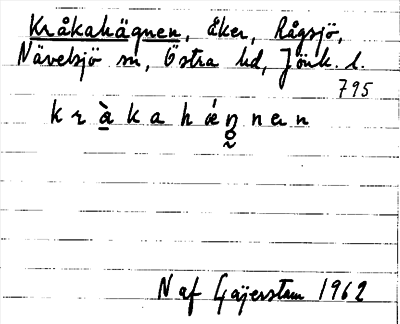 Kråkahägnen, åker, Rågsjö,
Nävelsjö sn, Östra hd, Jönk. l.
795
k r à k a h ǽ ŋ n e n
N af Geijerstam 1962